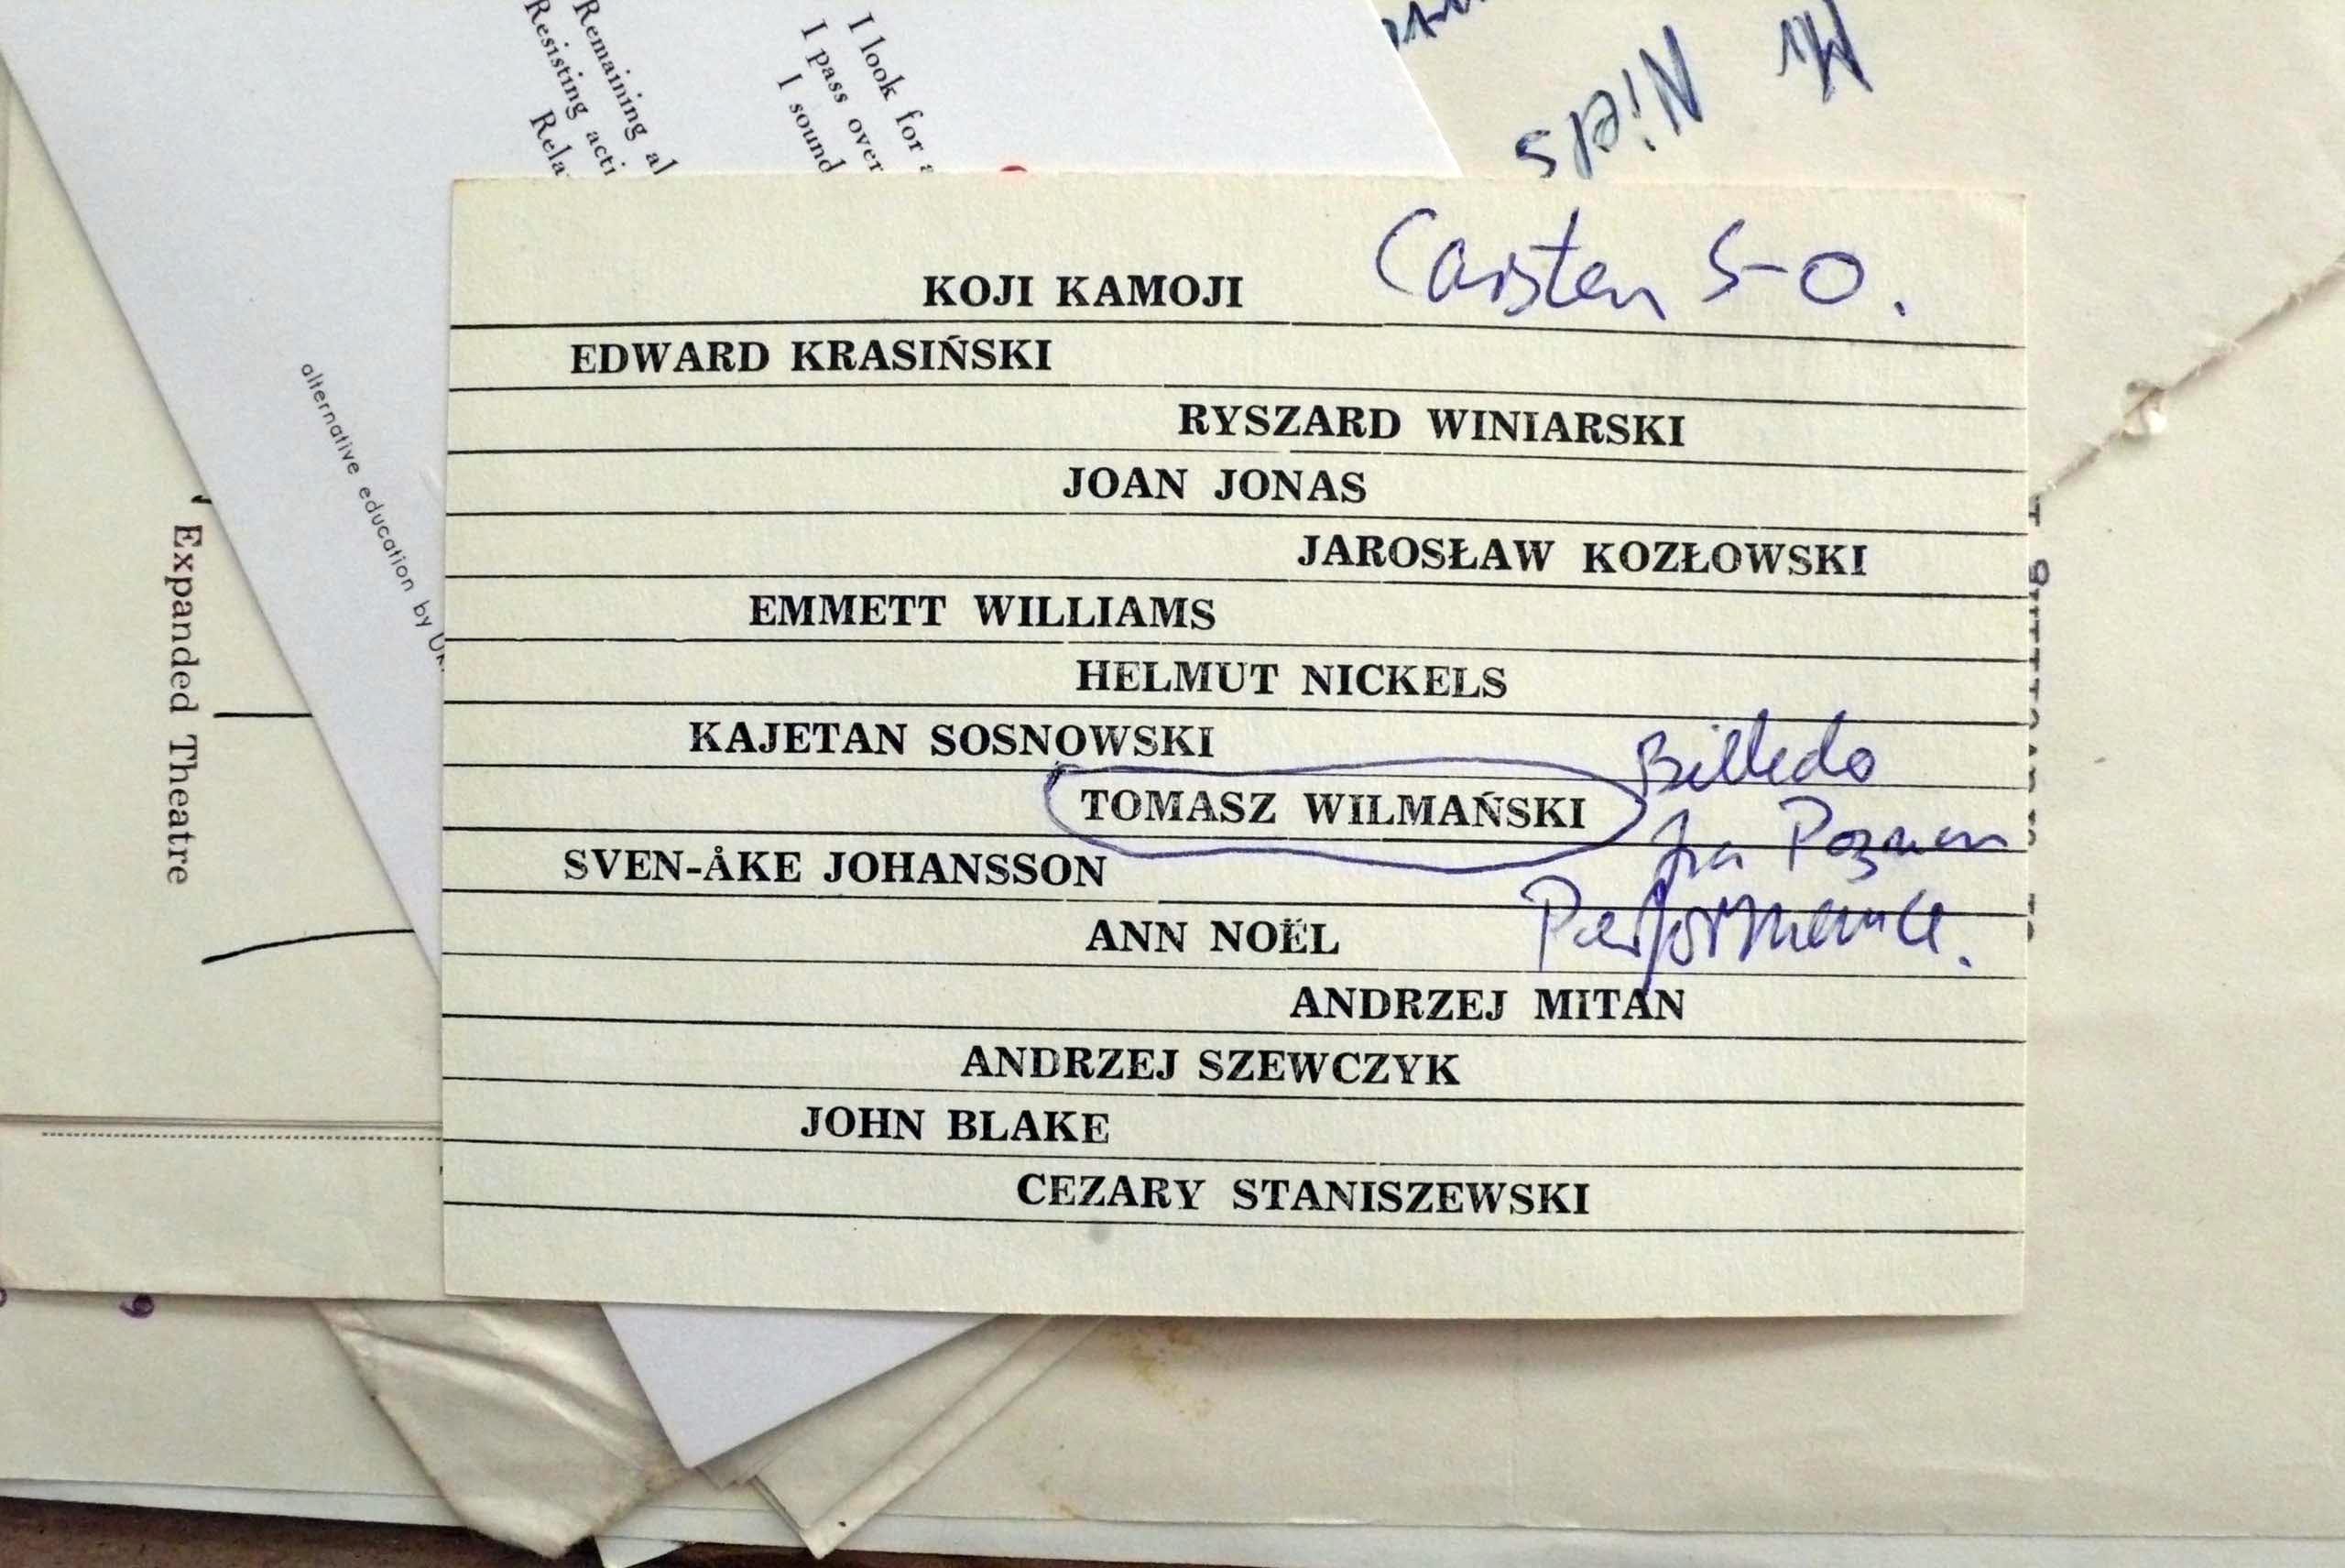 Remaining al
Resisting acti
Rela
I look for a
I pass over
I sound
Mr Niels
alternative education by
Expanded Theatre
Carsten S-O.
KOJI KAMOJI
EDWARD KRASIŃSKI
RYSZARD WINIARSKI
JOAN JONAS
JAROSŁAW KOZŁOWSKI
EMMETT WILLIAMS
HELMUT NICKELS
KAJETAN SOSNOWSKI
TOMASZ WILMAŃSKI
Billede
fra Poznan
Performance.
SVEN-ÅKE JOHANSSON
ANN NOËL
ANDRZEJ MITAN
ANDRZEJ SZEWCZYK
JOHN BLAKE
CEZARY STANISZEWSKI